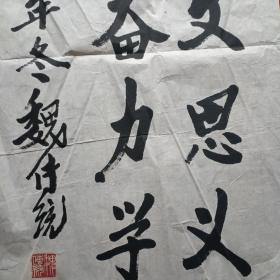 文思义
奋力学
年冬魏传统